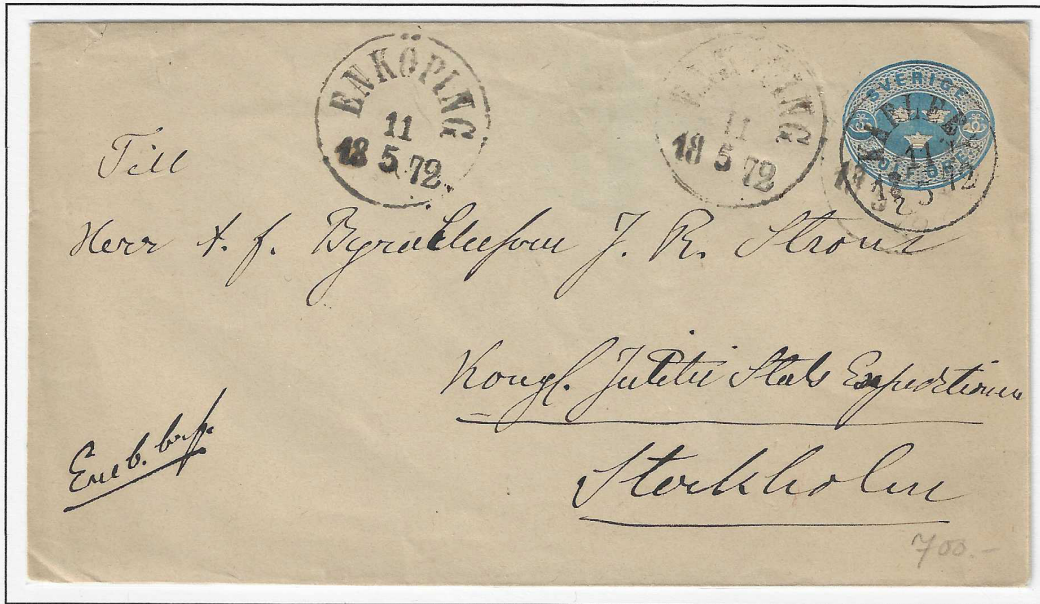 ENKÖPING
11
18 5 72
ENKÖPING
11
18 5 72
SVERIGE
TOLF ÖRE
11
18 5 72
Till
Herr t. f. Byråchefen J. R. Strous
Kongl. Justitie Stats Expeditionen
Eneb. brf.
Stockholm
700.-